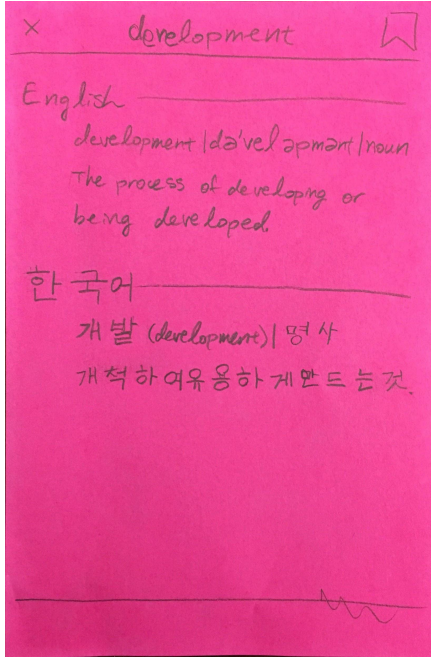 × development
English
development |də'veləpmənt|noun
The process of developing or
being developed.
한국어
개발 (development)| 명사
개척하여유용하게만드는것.